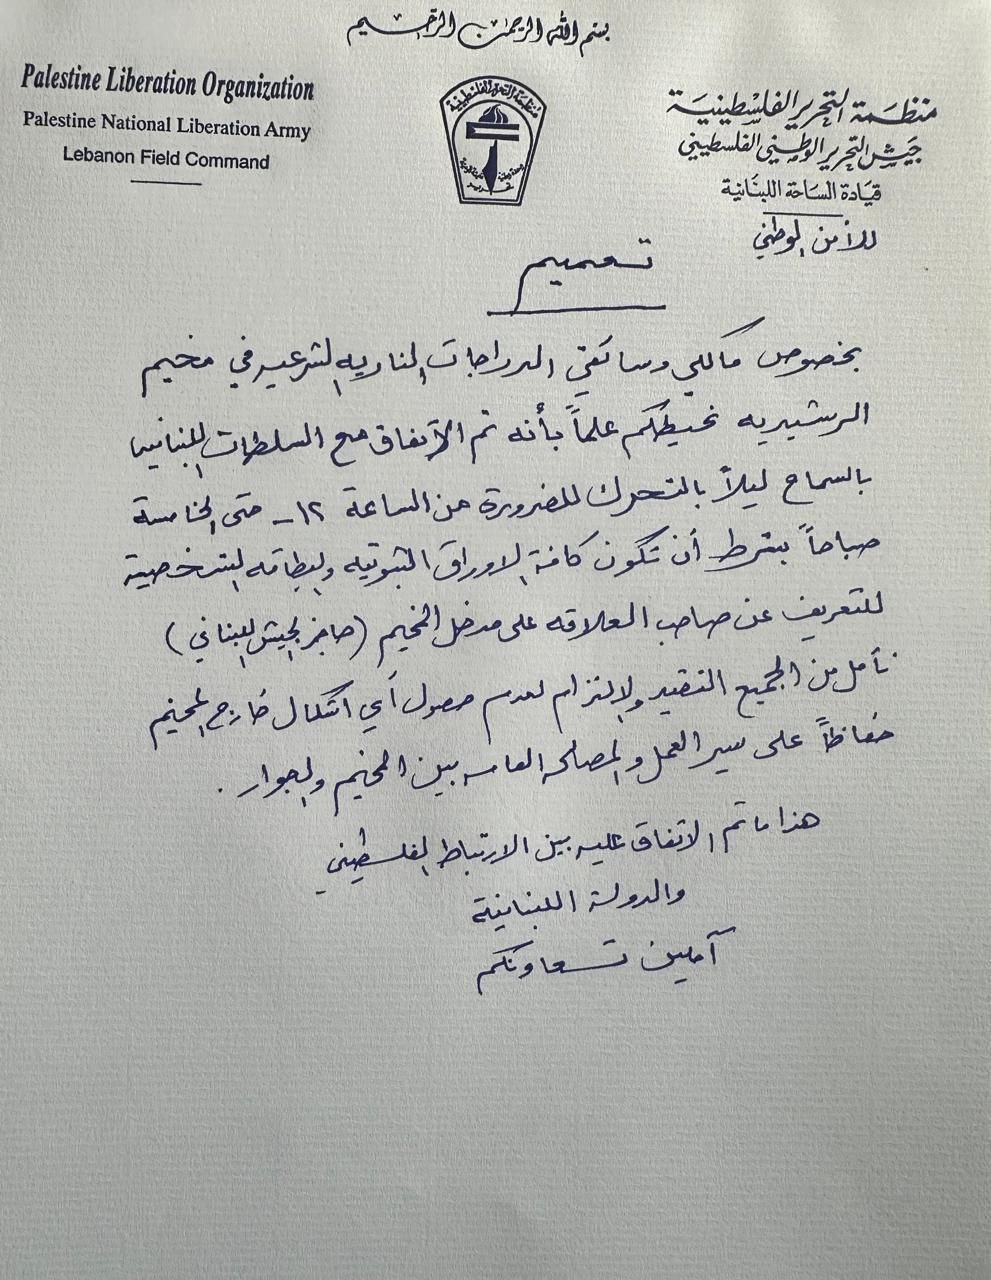 بسم الله الرحمن الرحيم
Palestine Liberation Organization
Palestine National Liberation Army
Lebanon Field Command
منظمة التحرير الفلسطينية
منظمة التحرير الفلسطينية
جيش التحرير الوطني الفلسطيني
قيادة الساحة اللبنانية
للأمن الوطني
تعميم
بخصوص مالكي وسائقي الدراجات النارية الشرعية في مخيم
الرشيديه نحيطكم علماً بأنه تم الاتفاق مع السلطات اللبنانيه
بالسماح ليلاً بالتحرك للضرورة من الساعة ١٢ - حتى الخامسة
صباحاً بشرط أن تكون كافة الاوراق الثبوتيه والبطاقه الشخصية
للتعريف عن صاحب العلاقه على مدخل المخيم (حاجز الجيش اللبناني)
نأمل من الجميع التقيد والالتزام لعدم حصول أي اشكال خارج المخيم
حفاظاً على سير العمل والمصالحه العامه بين المخيم والجوار .
هذا ما تم الاتفاق عليه بين الارتباط الفلسطيني
والدولة اللبنانية
آملين تعاونكم